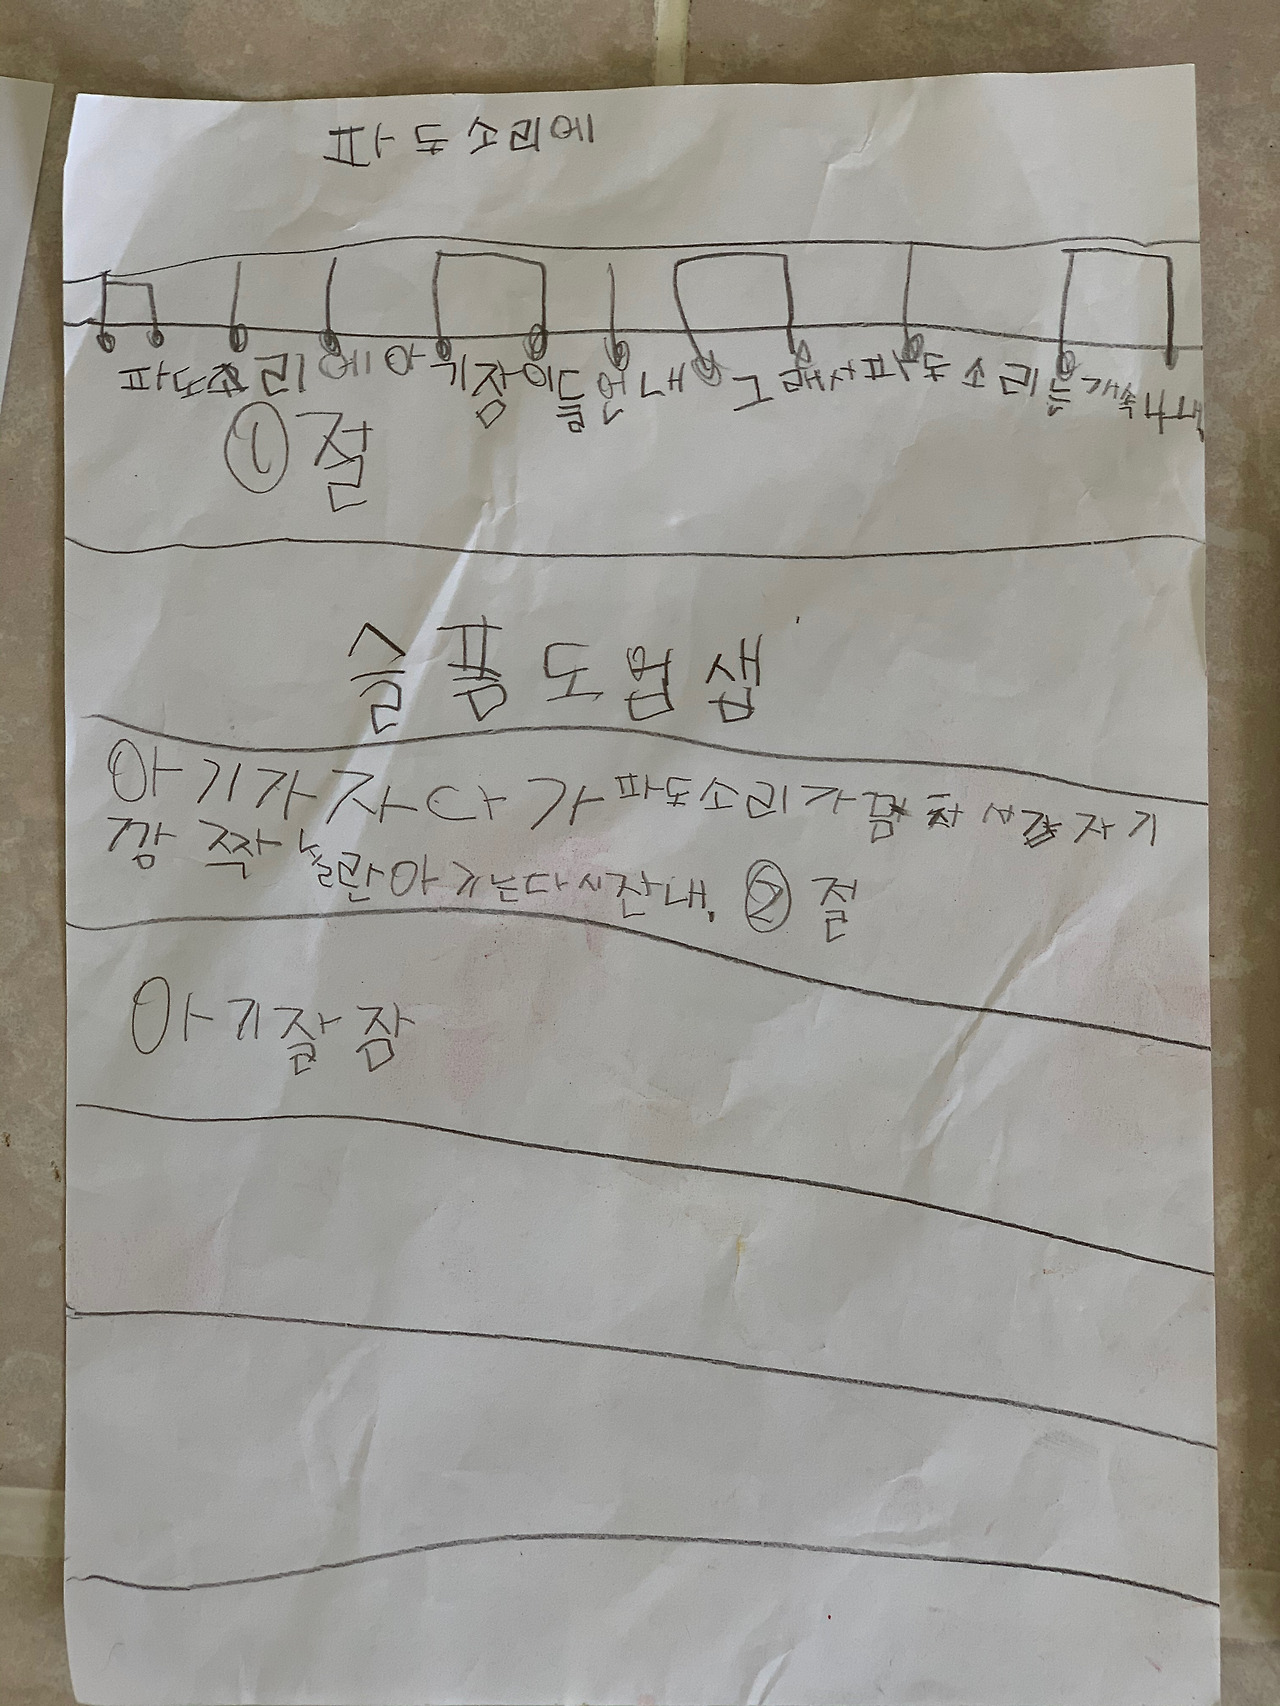 파도소리에
파도소리에아기잠이들언내 그래서파도소리는개속나내
①절
슬픔도업샙
아기가자다가파도소리가멈차서갑자기
깜짝놀란아기는다시잔내. ②절
아기잘잠